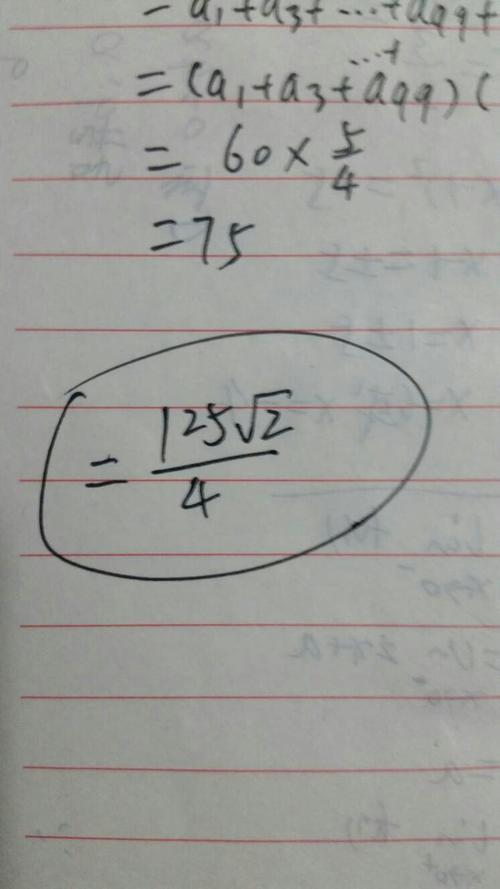 = a₁+a₃+…+a₉₉+
= (a₁+a₃+…+a₉₉)(
= 60 × 5/4
= 75
= 125√2/4